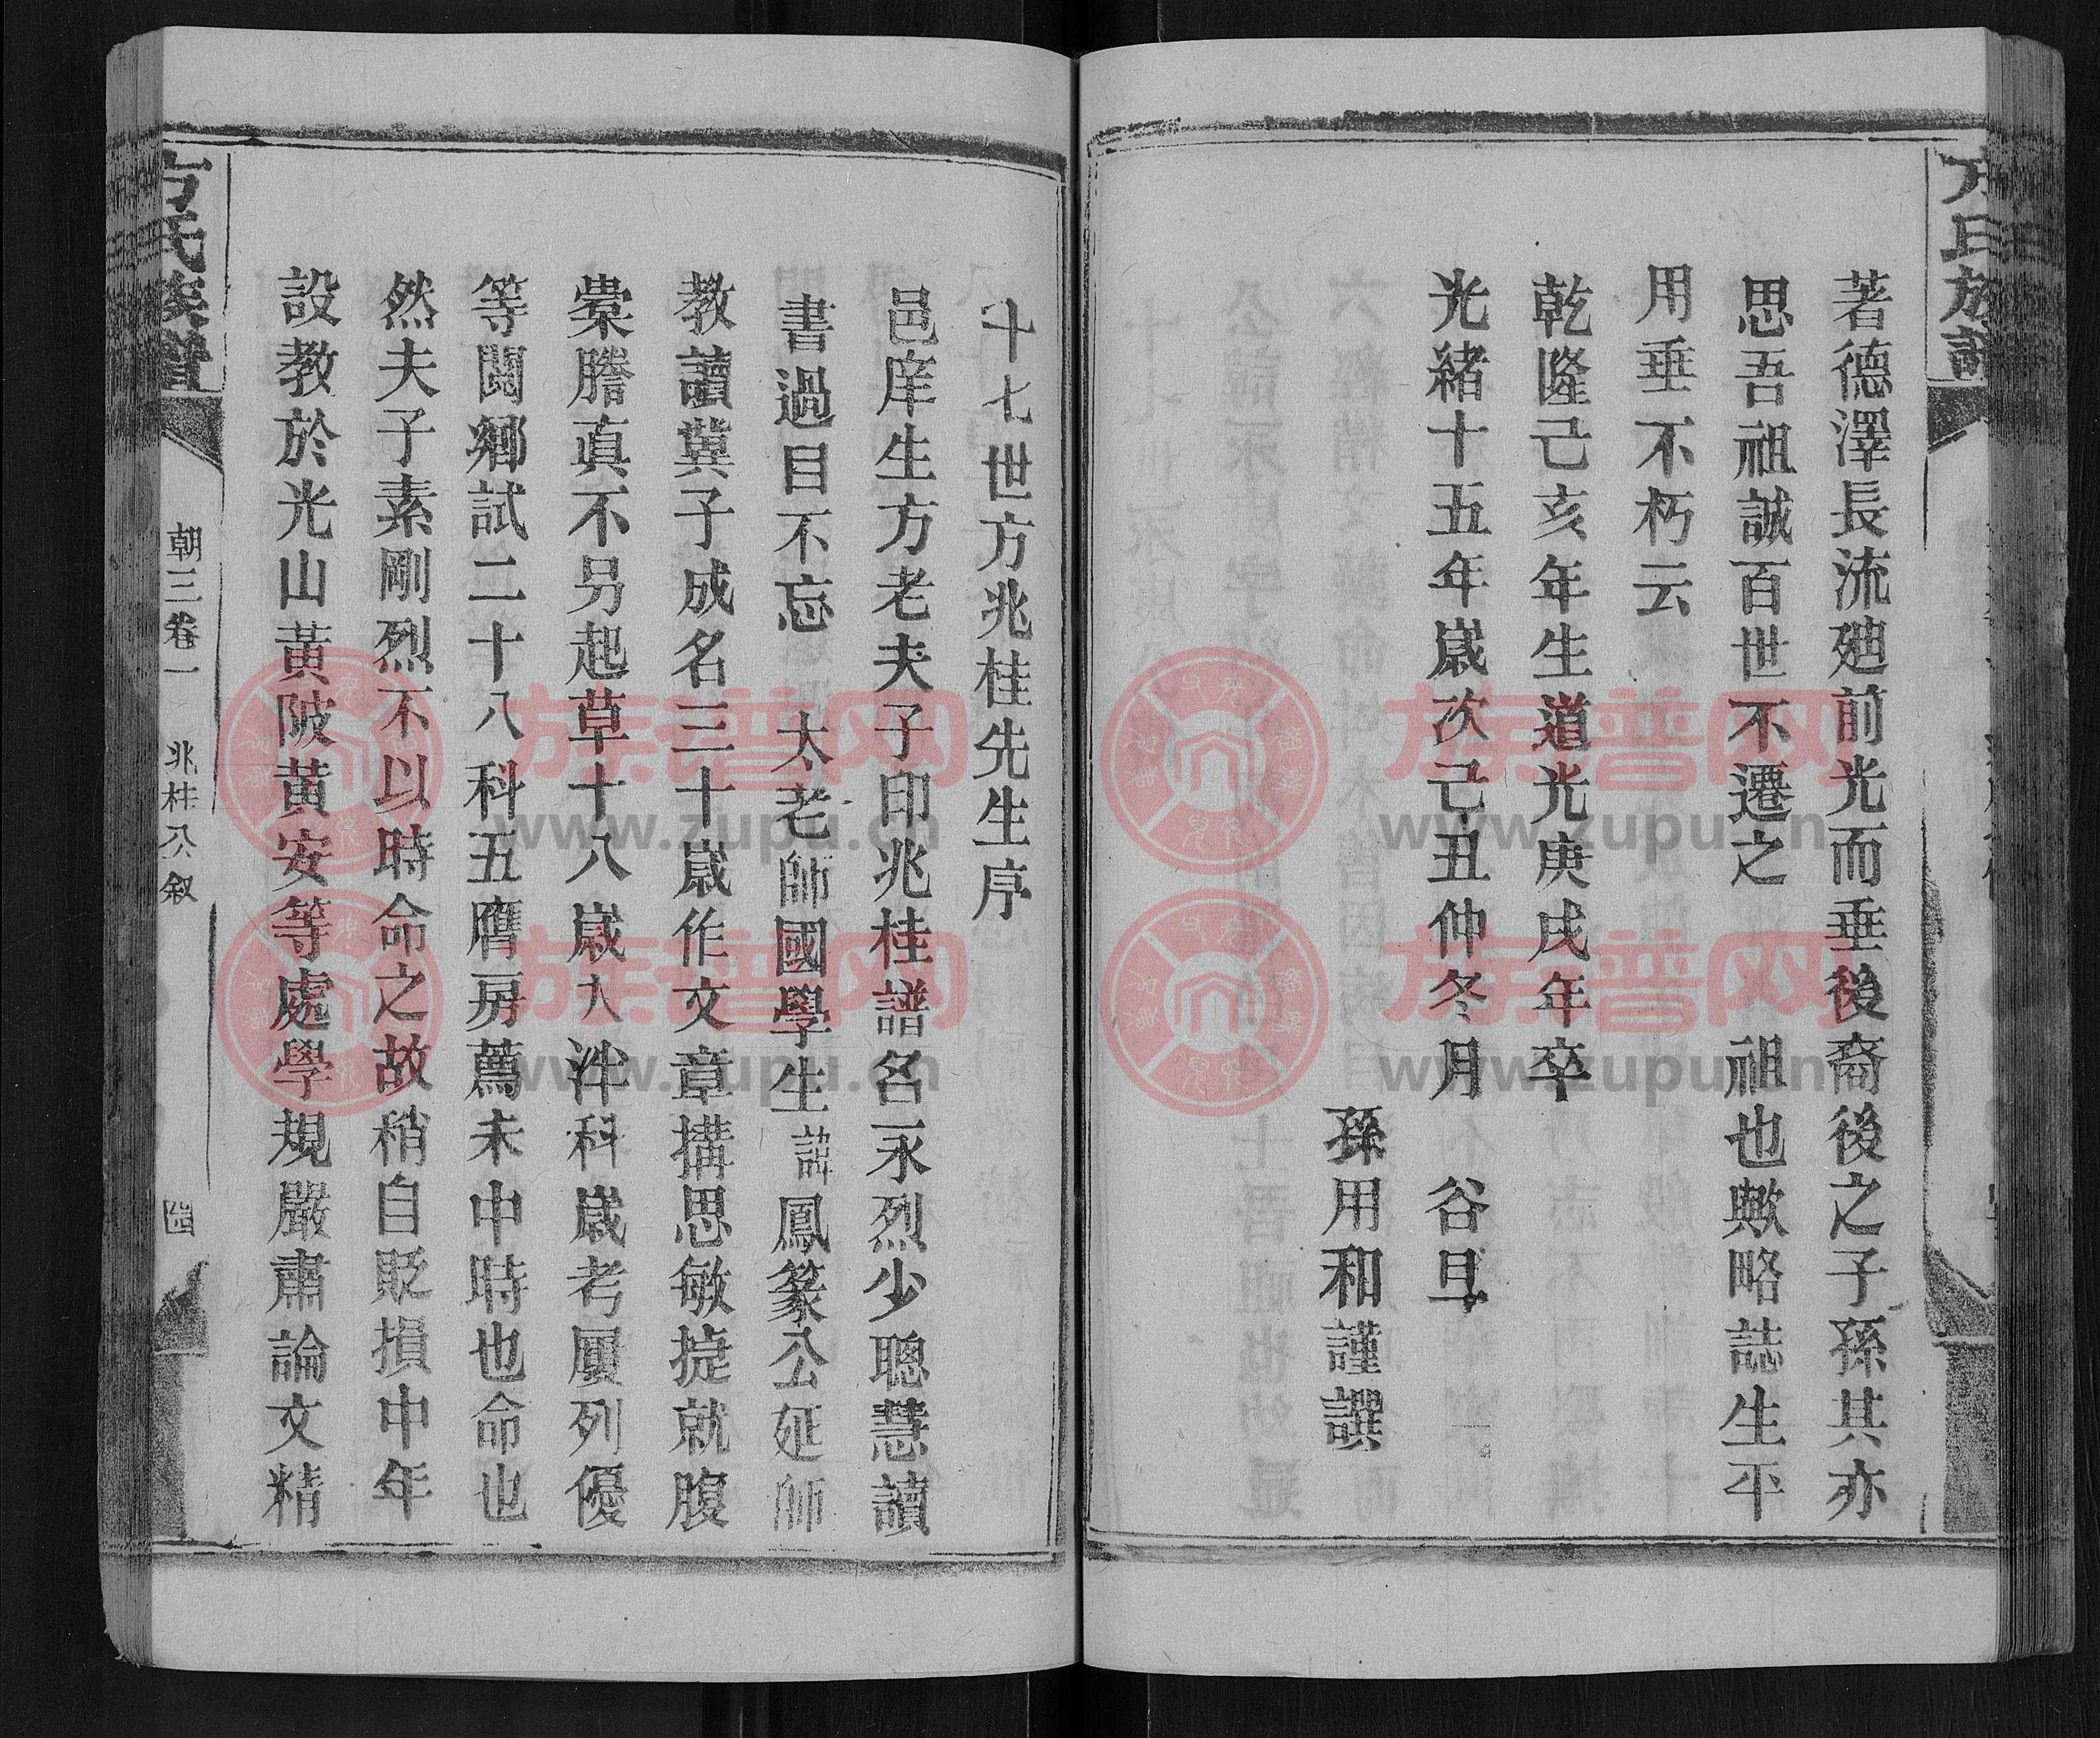 方氏族譜
著德澤長流廸前光而垂後裔後之子孫其亦
思吾祖誠百世不遷之　祖也歟略誌生平
用垂不朽云
乾隆己亥年生道光庚戌年卒
光緒十五年歲次己丑仲冬月　谷旦
孫用和謹譔
十七世方兆桂先生序
邑庠生方老夫子印兆桂譜名永烈少聰慧讀
書過目不忘　太老師國學生諱鳳篆公延師
教讀冀子成名三十歲作文章搆思敏捷就腹
槀謄真不另起草十八歲入泮科歲考屢列優
等闈鄉試二十八科五膺房薦未中時也命也
然夫子素剛烈不以時命之故稍自貶損中年
設教於光山黃陂黃安等處學規嚴肅論文精
方氏族譜
朝三卷一　兆桂公叙
族普网
www.zupu.cn
族普网
www.zupu.cn
族普网
www.zupu.cn
族普网
www.zupu.cn